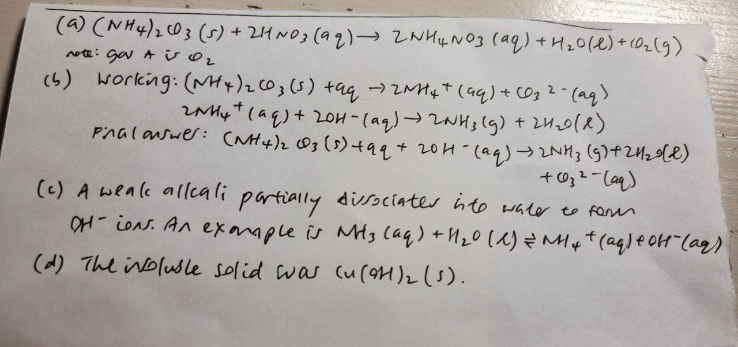 (a) (NH4)2CO3 (s) + 2HNO3 (aq) → 2NH4NO3 (aq) + H2O(l) + CO2(g)
note: gas A is CO2
(b) Working: (NH4)2CO3 (s) + aq → 2NH4+ (aq) + CO3 2- (aq)
2NH4+ (aq) + 2OH- (aq) → 2NH3 (g) + 2H2O(l)
Final answer: (NH4)2CO3 (s) + aq + 2OH- (aq) → 2NH3 (g) + 2H2O(l)
+ CO3 2- (aq)
(c) A weak alkali partially dissociates into water to form
OH- ions. An example is NH3 (aq) + H2O (l) ⇌ NH4+ (aq) + OH- (aq)
(d) The insoluble solid was Cu(OH)2 (s).